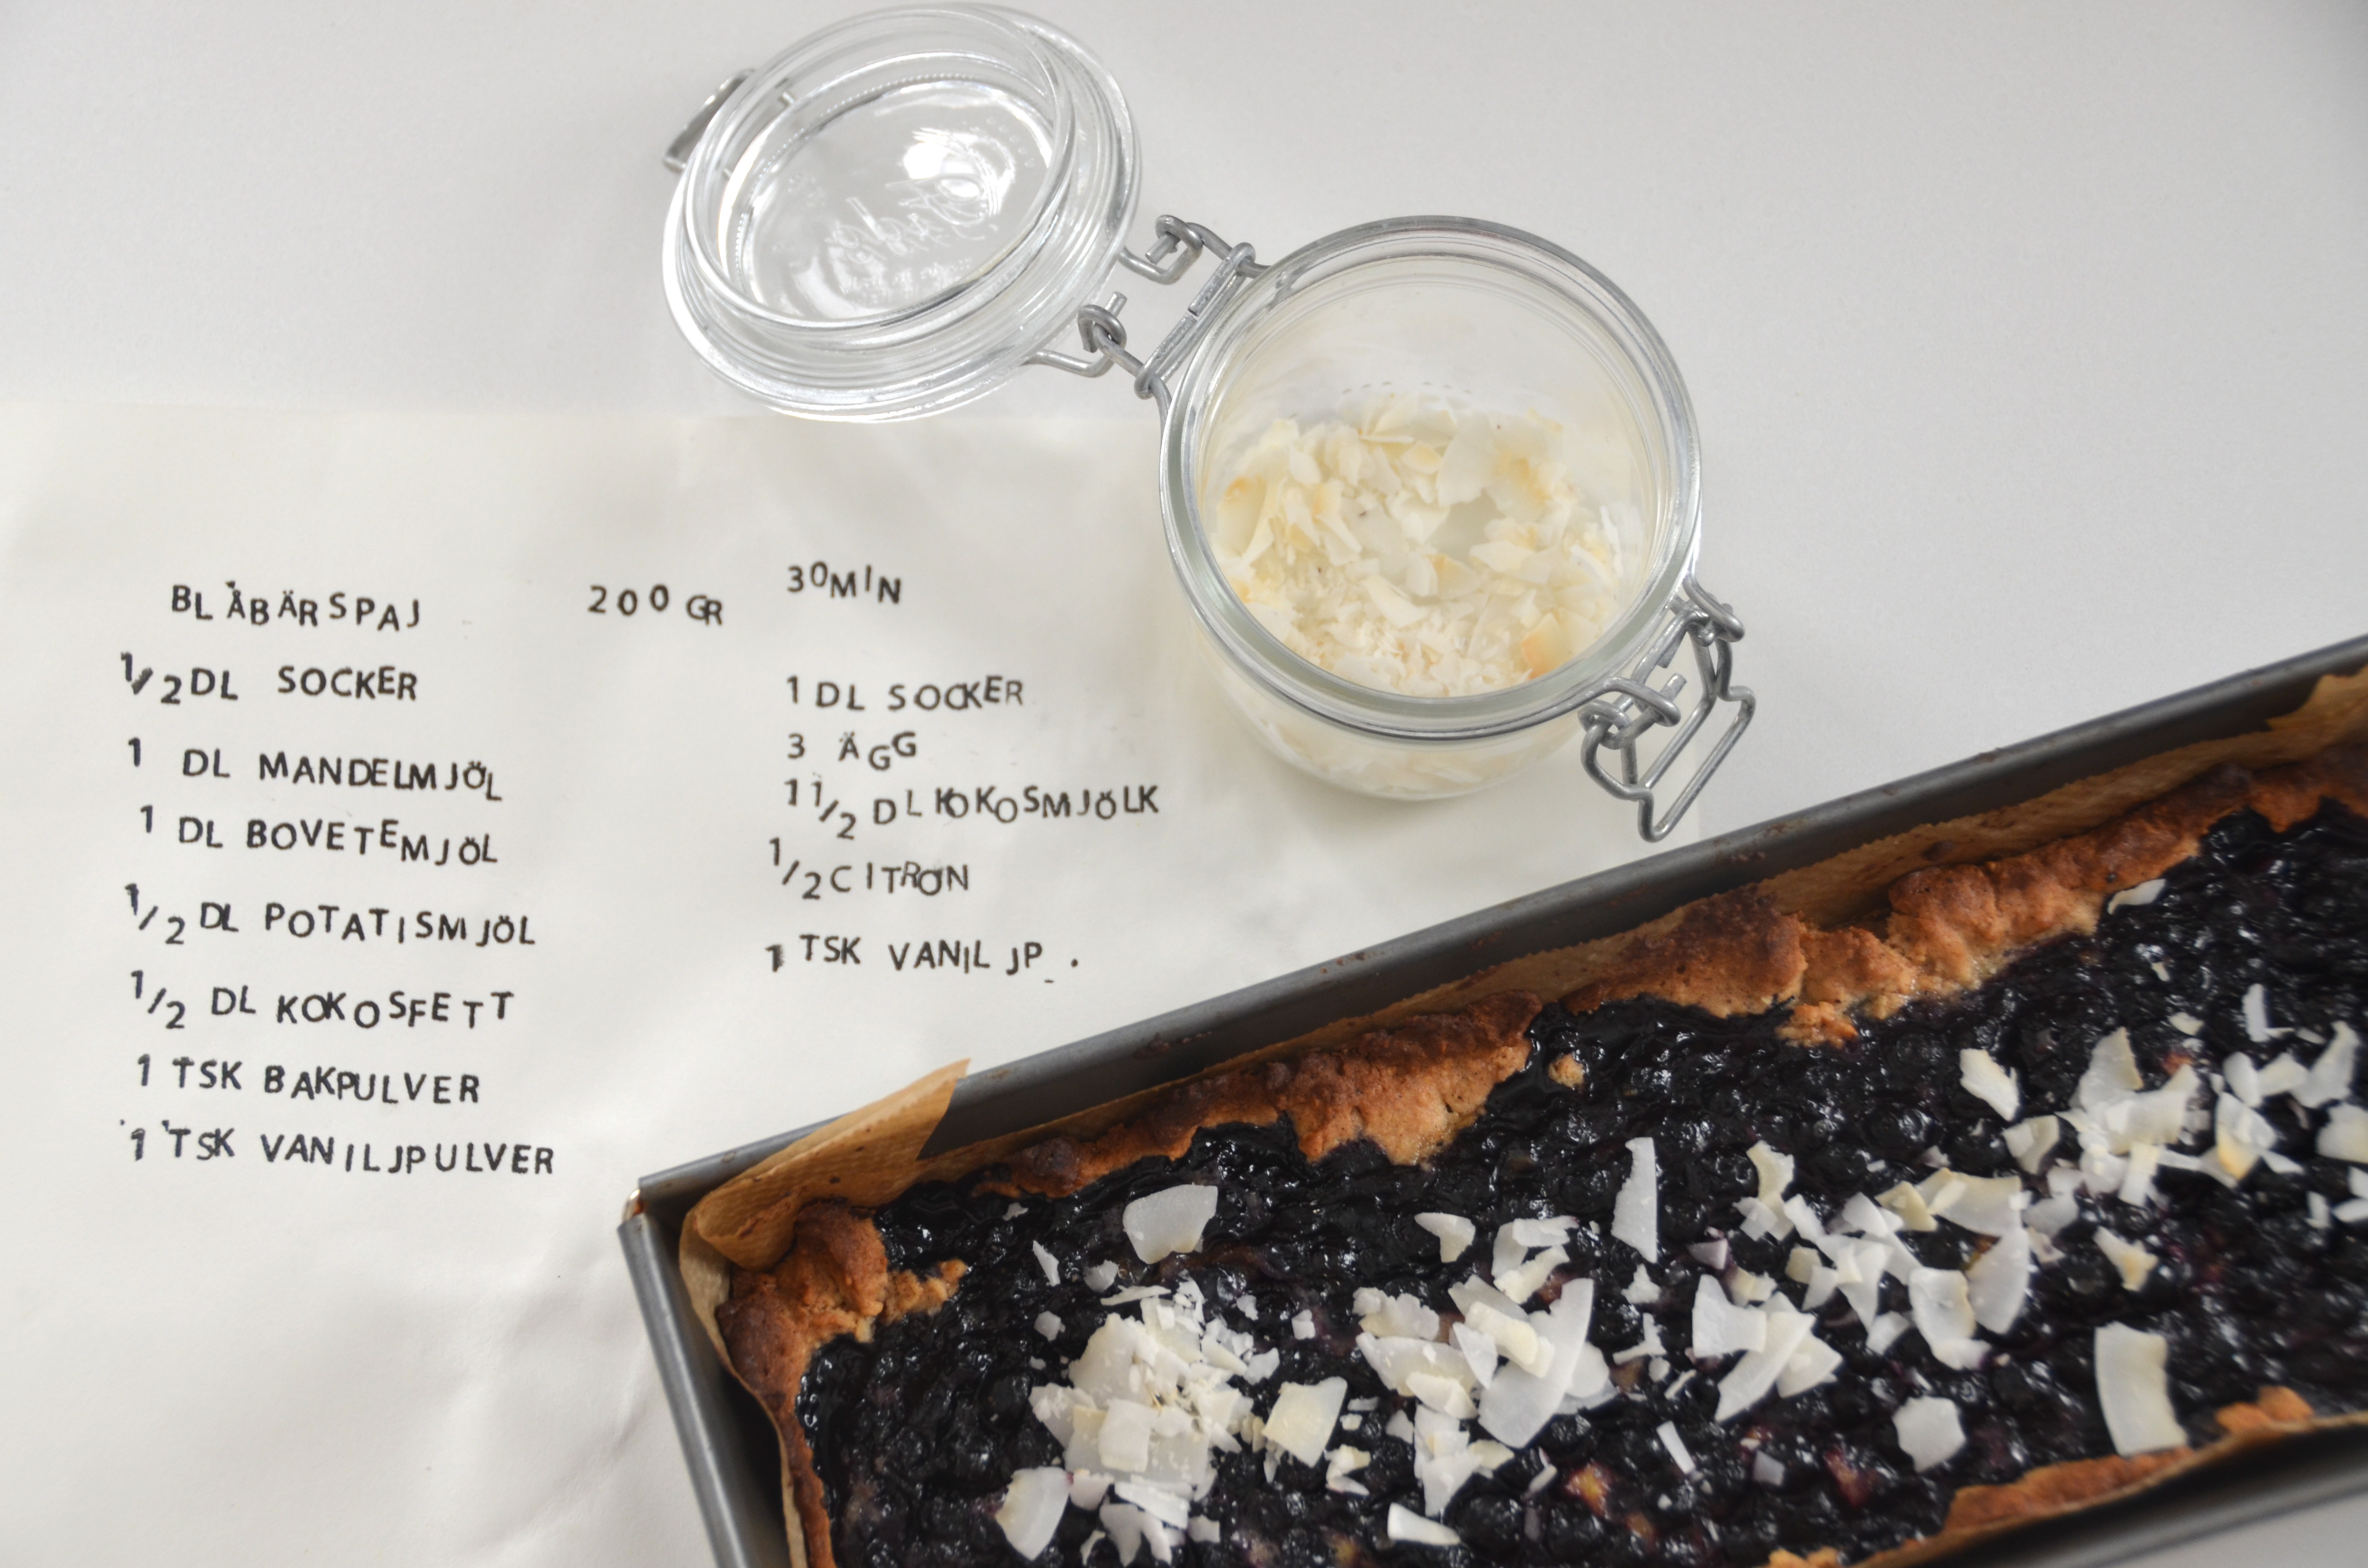 BLÅBÄRSPAJ 200 GR 30MIN
1/2 DL SOCKER
1 DL MANDELMJÖL
1 DL BOVETEMJÖL
1/2 DL POTATISMJÖL
1/2 DL KOKOSFETT
1 TSK BAKPULVER
1 TSK VANILJPULVER
1 DL SOCKER
3 ÄGG
1 1/2 DL KOKOSMJÖLK
1/2 CITRON
1 TSK VANILJP.